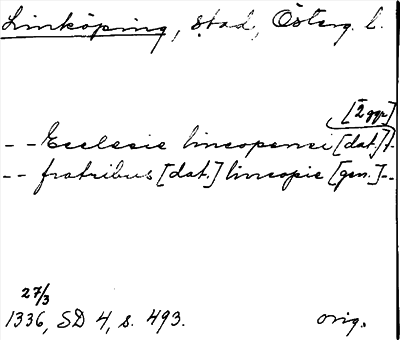 Linköping, stad, Österg. l.
[2 ggr]
- - Ecclesie lincopensi [dat.] -
- - fratribus [dat.] lincopie [gen.] - -
27/3
1336, SD 4, s. 493. orig.